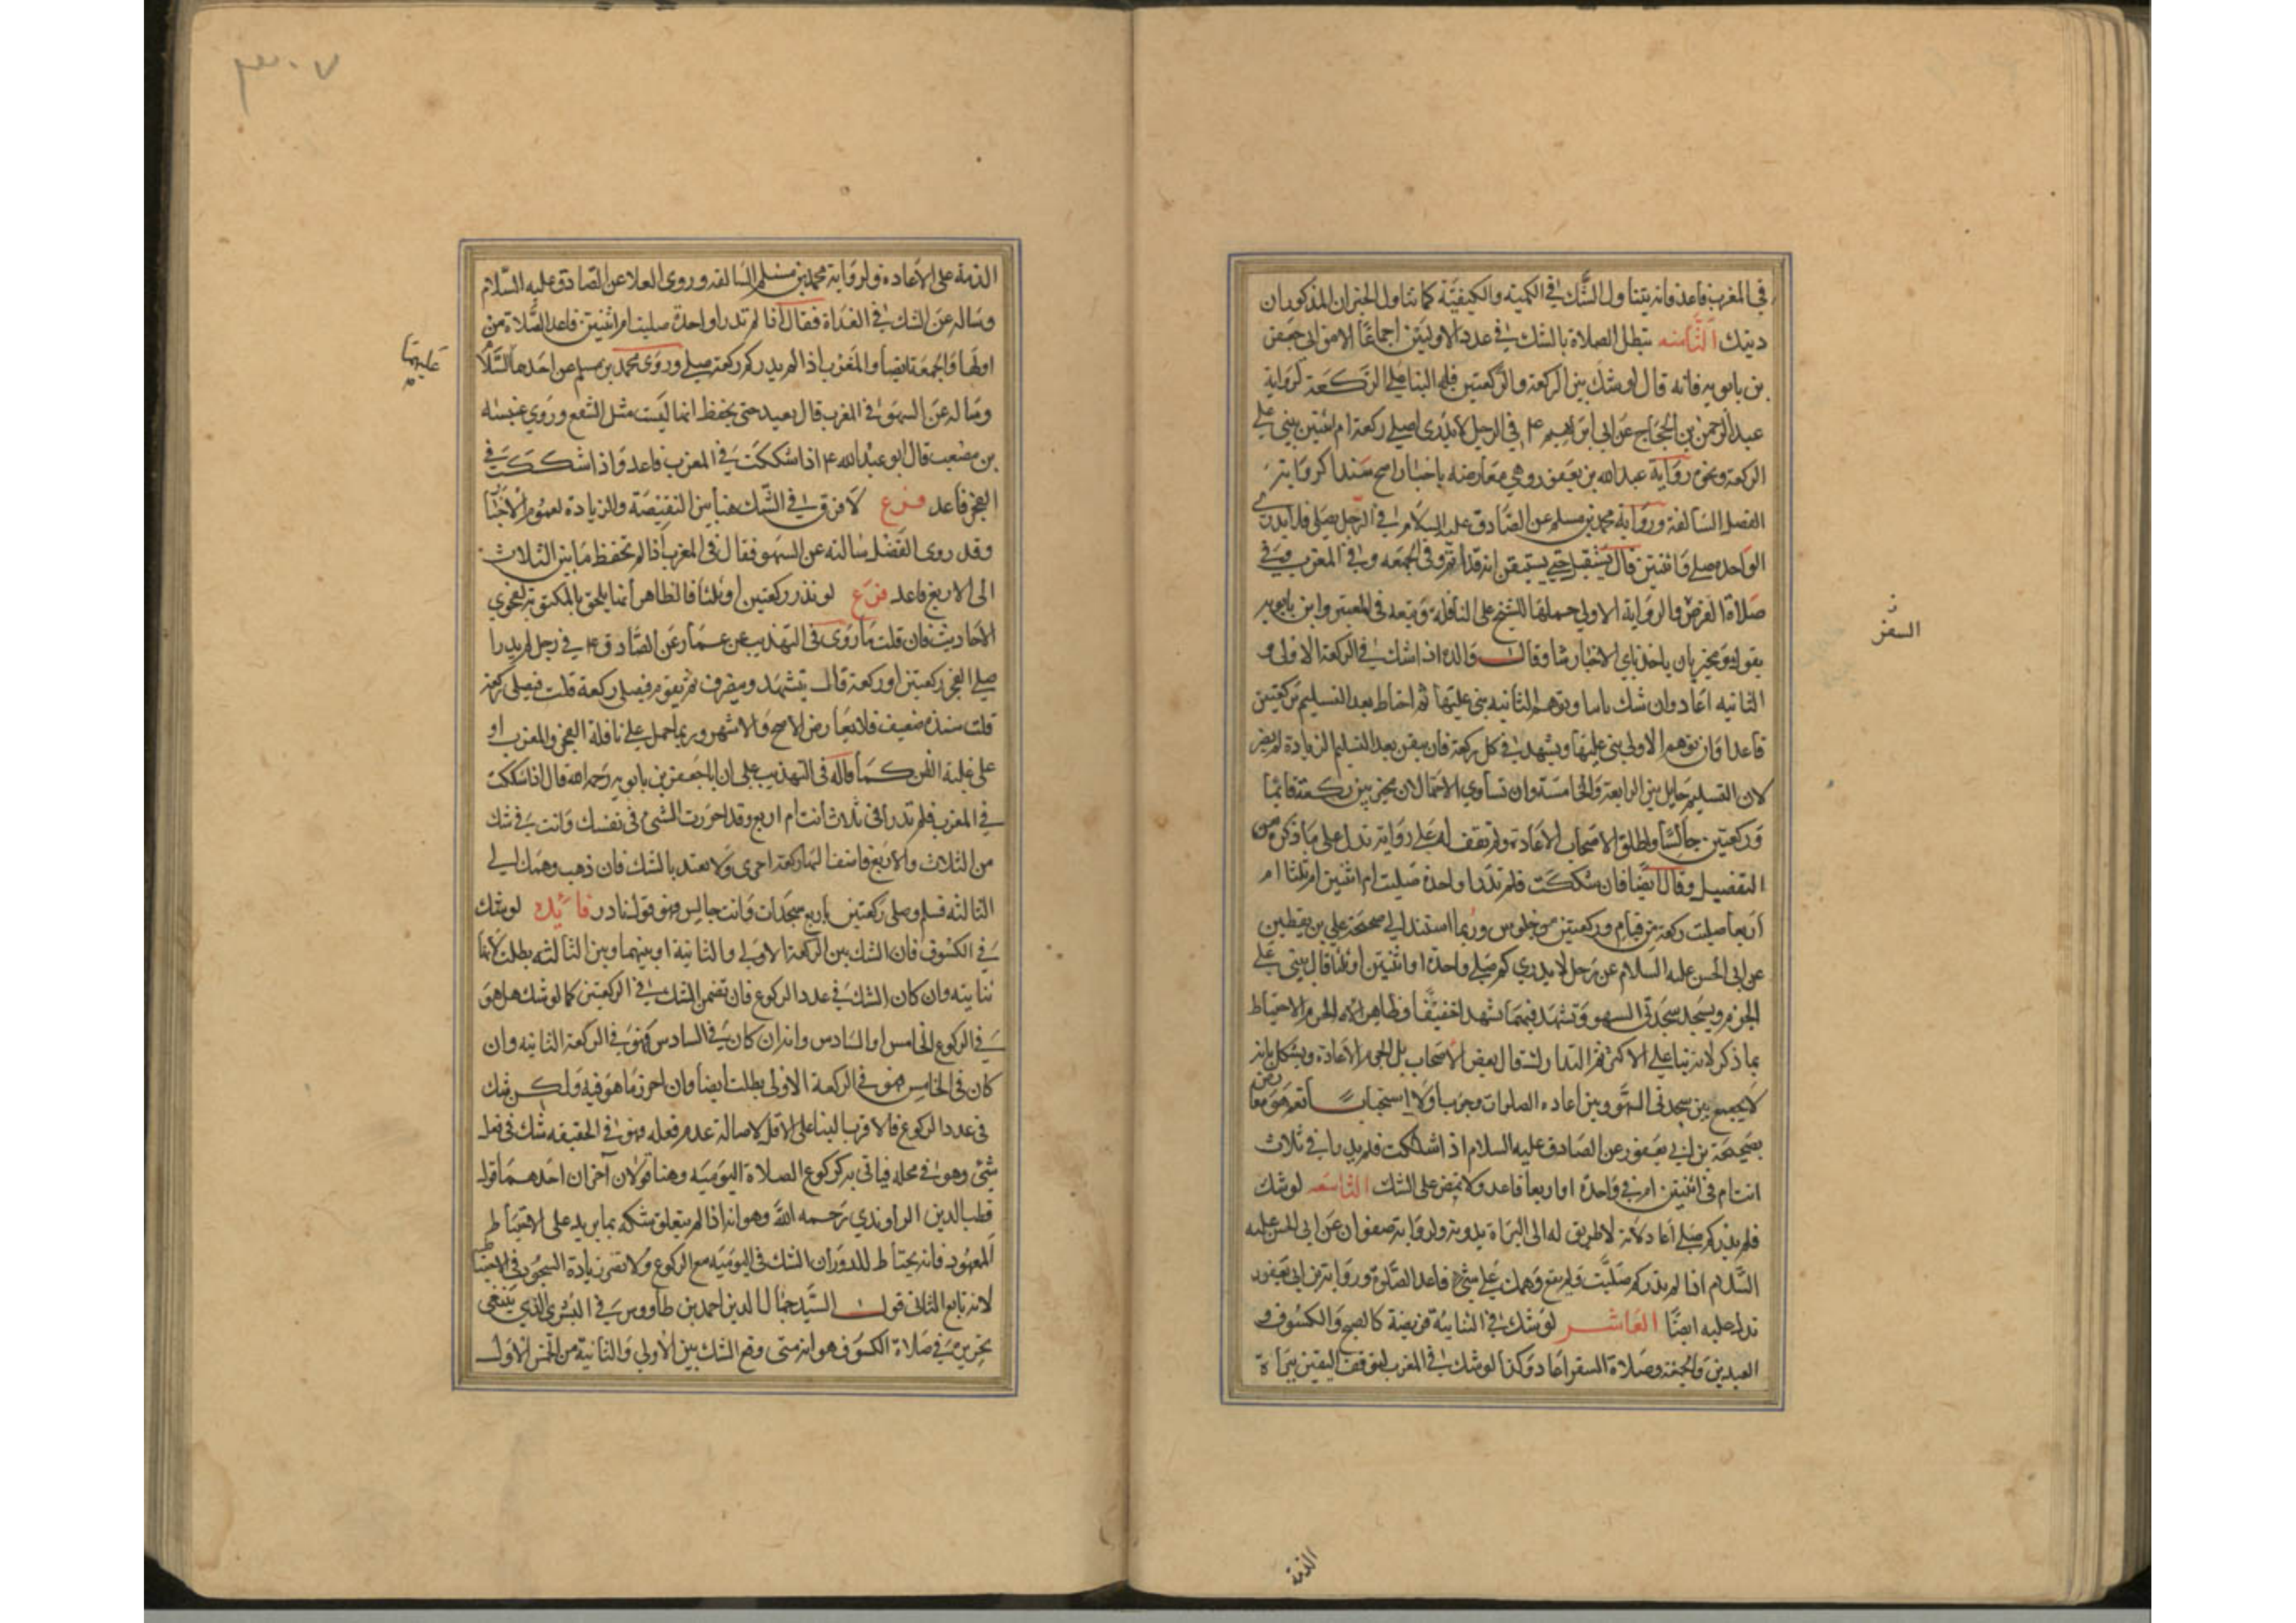 في المغرب فاعد فانه يتناول الشك في الكمية والكيفية كما تناول الخبران المذكوران
دينك الثامنه تبطل الصلاة بالشك في عدد الاوليين اجماعا الا من ابى جعفر
بن بابويه فانه قال لو شك بين الركعة والركعتين فله البنا على الركعة لرواية
عبد الرحمن بن الحجاج عن ابي ابراهيم ع في الرجل لا يدرى اصلى ركعة ام اثنتين يبني على
الركعة ونحوه رواية عبد الله بن يعفور وهي معارضه باخبار اصح سندا كرواية
الفضل السالفة ورواية محمد بن مسلم عن الصادق عليه السلام في الرجل يصلى فلا يدرى
الواحده صلى او اثنتين قال يستقبل حتى يستيقن انه قد اتم وفي الجمعه وفي المغرب وفي
صلاة الفرض والرواية الاولى حملها الشيخ على النافلة وتبعه في المعتبر وابن بابويه
السفر
يقول هو مخير بان ياخذ باي الاخبار شا وقال والده اذا شك في الركعة الاولى و
الثانيه اعاد وان شك ثانيا وتوهم الثانيه بنى عليها ثم احتاط بعد التسليم بركعتين
قاعدا وان توهم الاولى بنى عليها وتشهد في كل ركعة فان تيقن بعد التسليم الزيادة لم يضر
لان التسليم حايل بين الرابعة والخامسة وان تساوي الاحتمالان تخير بين ركعة قائما
وركعتين جالسا واطلق الاصحاب الاعادة ولم نقف له على رواية تدل على ما ذكره من
التفصيل وقال ايضا فان شككت فلم تدر اواحدة صليت ام اثنتين ام ثلثا ام
اربعا صليت ركعة من قيام وركعتين من جلوس وربما استند الى صحيحة علي بن يقطين
عن ابي الحسن عليه السلام عن رجل لا يدري كم صلى واحدة او اثنتين او ثلثا قال يبني على
الجزم ويسجد سجدتي السهو وتشهد فيهما تشهدا خفيفا وظاهر الجزم الاحتياط
بما ذكر لانه بنا على الاكثر ثم التدارك قال بعض الاصحاب بل الجزم الاعادة ويشكل بانه
لا يجمع بين سجدتي السهو وبين اعاده الصلوات وجوبا ولا استحبابا نعم هو معارض
بصحيحة بن ابي يعفور عن الصادق عليه السلام اذا شككت فلم تدر افي ثلاث
انت ام في اثنتين ام في واحدة او اربعا فاعد ولا تمض على الشك التاسعه لو شك
فلم يدر كم صلى اعاد لانه لا طريق له الى البراة بدونه ولرواية صفوان عن ابى الحسن عليه
السلام اذا لم تدر كم صليت ولم يقع وهمك على شئ فاعد الصلوة ورواية بن ابي يعفور
تدل عليه ايضا العاشر لو شك في الثنائية فريضة كالصبح والكسوف و
العيدين والجمعة وصلاة السفر اعاد وكذا لو شك في المغرب لتوقف اليقين ببراة
الذمة
الذمة على الاعادة ولرواية محمد بن مسلم السالفه وروى العلا عن الصادق عليه السلام
وساله عن الشك في الغداة فقال اذا لم تدر اواحدة صليت ام اثنتين فاعد الصلاة من
اولها والجمعة ايضا والمغرب اذا لم يدر كم ركعة صلى وروى محمد بن مسلم عن احدهما السلام
عليهما
وساله عن السهو في المغرب قال يعيد حتى يحفظ انها ليست مثل الشفع وروي عنبسه
بن مصعب قال ابو عبد الله ع اذا شككت في المغرب فاعد واذا شككت في
الفجر فاعد فرع لا فرق في الشك هنا بين النقيصة والزيادة لعموم الاخبار
وقد روى الفضل سالته عن السهو فقال في المغرب اذا لم تحفظ ما بين الثلاث
الى الاربع فاعد فرع لو نذر ركعتين او ثلثا فالظاهر انها يلحق بالمكتوبة لفحوى
الاحاديث فان قلت ما روى في التهذيب عن عمار عن الصادق ع في رجل لم يدر ا
صلى الفجر ركعتين او ركعة قال يتشهد وينصرف ثم يقوم فيصلى ركعة قلت فيصلى ركعة
قلت سنده ضعيف فلا يعارض الاصح والاشهر وربما حمل على نافلة الفجر والمغرب او
على غلبة الظن كما قاله في التهذيب على ان ابا جعفر بن بابويه رحمه الله قال اذا شككت
في المغرب فلم تدر افي ثلاث انت ام اربع وقد احرزت الشئ في نفسك وانت في شك
من الثلاث والاربع فاضف اليها ركعة اخرى ولا تعتد بالشك فان ذهب وهمك الى
الثالثه فسلم وصلى ركعتين باربع سجدات وانت جالس وهو قول نادر فائده لو شك
في الكسوف فان الشك بين الركعة الاولى والثانية او بينهما وبين الثالثه بطلت لانها
ثنائيته وان كان الشك في عدد الركوع فان تضمن الشك في الركعتين كما لو شك هل هو
في الركوع الخامس او السادس وانه ان كان في السادس فهو في الركعة الثانيه وان
كان في الخامس فهو في الركعة الاولى بطلت ايضا وان احرز ما هو فيه ولكن شك
في عدد الركوع فالاقرب البنا على الاقل لاصالة عدم فعله وهو في الحقيقه شك في فعل
شئ وهو في محله فياتى به كركوع الصلاة اليوميه وهنا قولان آخران احدهما قول
قطب الدين الراوندي رحمه الله وهو انه اذا لم يتعلق شكه بما يزيد على الاحتياط
المعهود فانه يحتاط للدوران الشك في اليوميه مع الركوع ولا تضر زيادة السجود في الاحتياط
لانه تابع الثانى قول السيد جمال الدين احمد بن طاووس في البشرى الذي ينبغى
تحريره في صلاة الكسوف هو انه متى وقع الشك بين الاولى والثانية من الخمس الاول